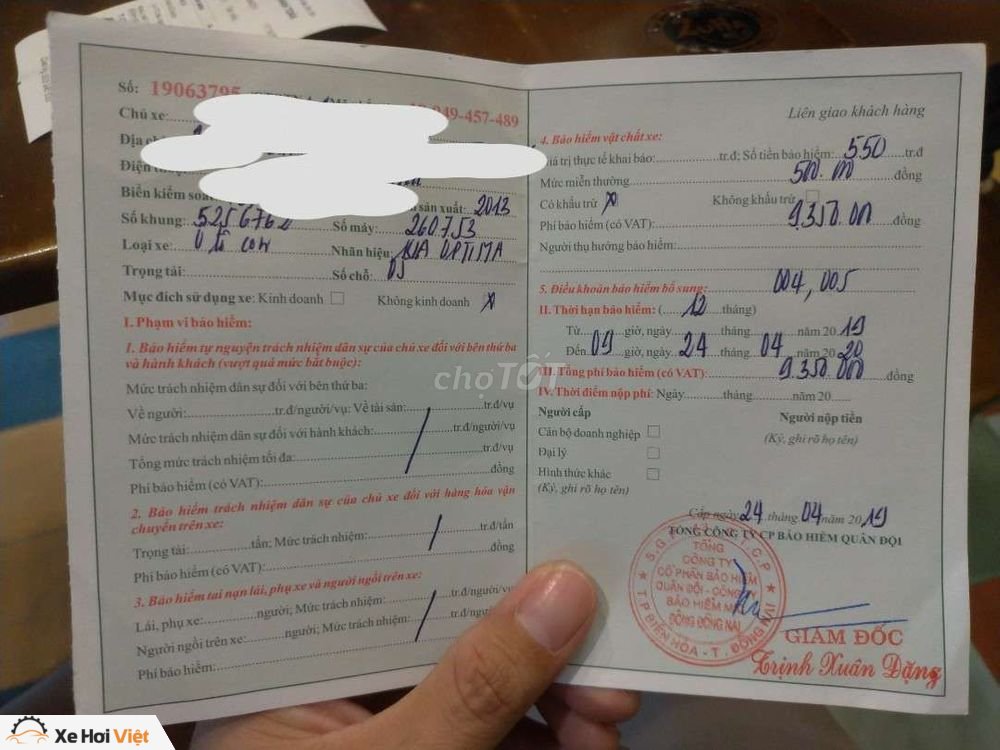 Số: 19063795
49-457-489
Chủ xe:
Địa ch
Điện
Biển kiểm soá
sản xuất: 2013
Số khung: 5256762 Số máy: 260753
Loại xe: Ô tô con Nhãn hiệu: KIA OPTIMA
Trọng tải: Số chỗ: 05
Mục đích sử dụng xe: Kinh doanh Không kinh doanh x
I. Phạm vi bảo hiểm:
1. Bảo hiểm tự nguyện trách nhiệm dân sự của chủ xe đối với bên thứ ba
và hành khách (vượt quá mức bắt buộc):
Mức trách nhiệm dân sự đối với bên thứ ba:
Về người:..........tr.đ/người/vụ: Về tài sản:..........tr.đ/vụ
Mức trách nhiệm dân sự đối với hành khách:..........tr.đ/người/vụ
Tổng mức trách nhiệm tối đa:..........tr.đ/vụ
Phí bảo hiểm (có VAT):..........đồng
2. Bảo hiểm trách nhiệm dân sự của chủ xe đối với hàng hóa vận
chuyển trên xe:
Trọng tải:..........tấn; Mức trách nhiệm:..........tr.đ/tấn
Phí bảo hiểm (có VAT):..........đồng
3. Bảo hiểm tai nạn lái, phụ xe và người ngồi trên xe:
Lái, phụ xe:..........người; Mức trách nhiệm:..........tr.đ/người/vụ
Người ngồi trên xe:..........người; Mức trách nhiệm:..........tr.đ/người/vụ
Phí bảo hiểm:..........đồng
Liên giao khách hàng
4. Bảo hiểm vật chất xe:
Giá trị thực tế khai báo:..........tr.đ; Số tiền bảo hiểm: 550 tr.đ
Mức miễn thường.......... 500.000 đồng
Có khấu trừ x Không khấu trừ
Phí bảo hiểm (có VAT) 9.350.000 đồng
Người thụ hưởng bảo hiểm:..........
5. Điều khoản bảo hiểm bổ sung: 004, 005
II. Thời hạn bảo hiểm: (...12...tháng)
Từ 09 giờ, ngày 24 tháng 04 năm 2019
Đến giờ, ngày tháng năm 2020
III. Tổng phí bảo hiểm (có VAT): 9.350.000 đồng
IV. Thời điểm nộp phí: Ngày..........tháng..........năm 20.....
Người cấp Người nộp tiền
Cán bộ doanh nghiệp (Ký, ghi rõ họ tên)
Đại lý
Hình thức khác
(Ký, ghi rõ họ tên)
Cấp ngày 24 tháng 04 năm 2019
TỔNG CÔNG TY CP BẢO HIỂM QUÂN ĐỘI
TỔNG
CÔNG TY
CỔ PHẦN BẢO HIỂM
QUÂN ĐỘI - CÔNG TY
BẢO HIỂM M
ĐÔNG ĐỒNG NAI
TP. BIÊN HÒA - T. ĐỒNG NAI
GIÁM ĐỐC
Trịnh Xuân Đặng
chợTỐT
Xe Hơi Việt